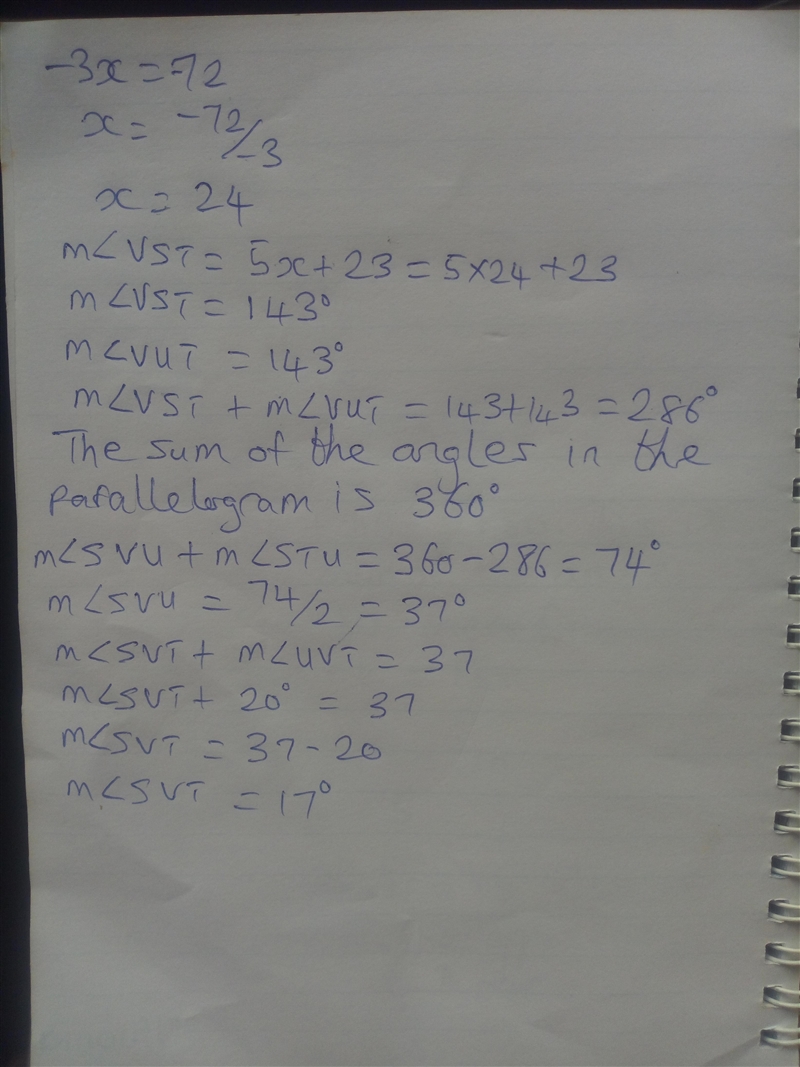 -3x = -72
x = -72/-3
x = 24
m∠VST = 5x + 23 = 5×24 + 23
m∠VST = 143°
m∠VUT = 143°
m∠VST + m∠VUT = 143+143 = 286°
The sum of the angles in the
parallelogram is 360°
m∠SVU + m∠STU = 360 - 286 = 74°
m∠SVU = 74/2 = 37°
m∠SVT + m∠UVT = 37
m∠SVT + 20° = 37
m∠SVT = 37 - 20
m∠SVT = 17°